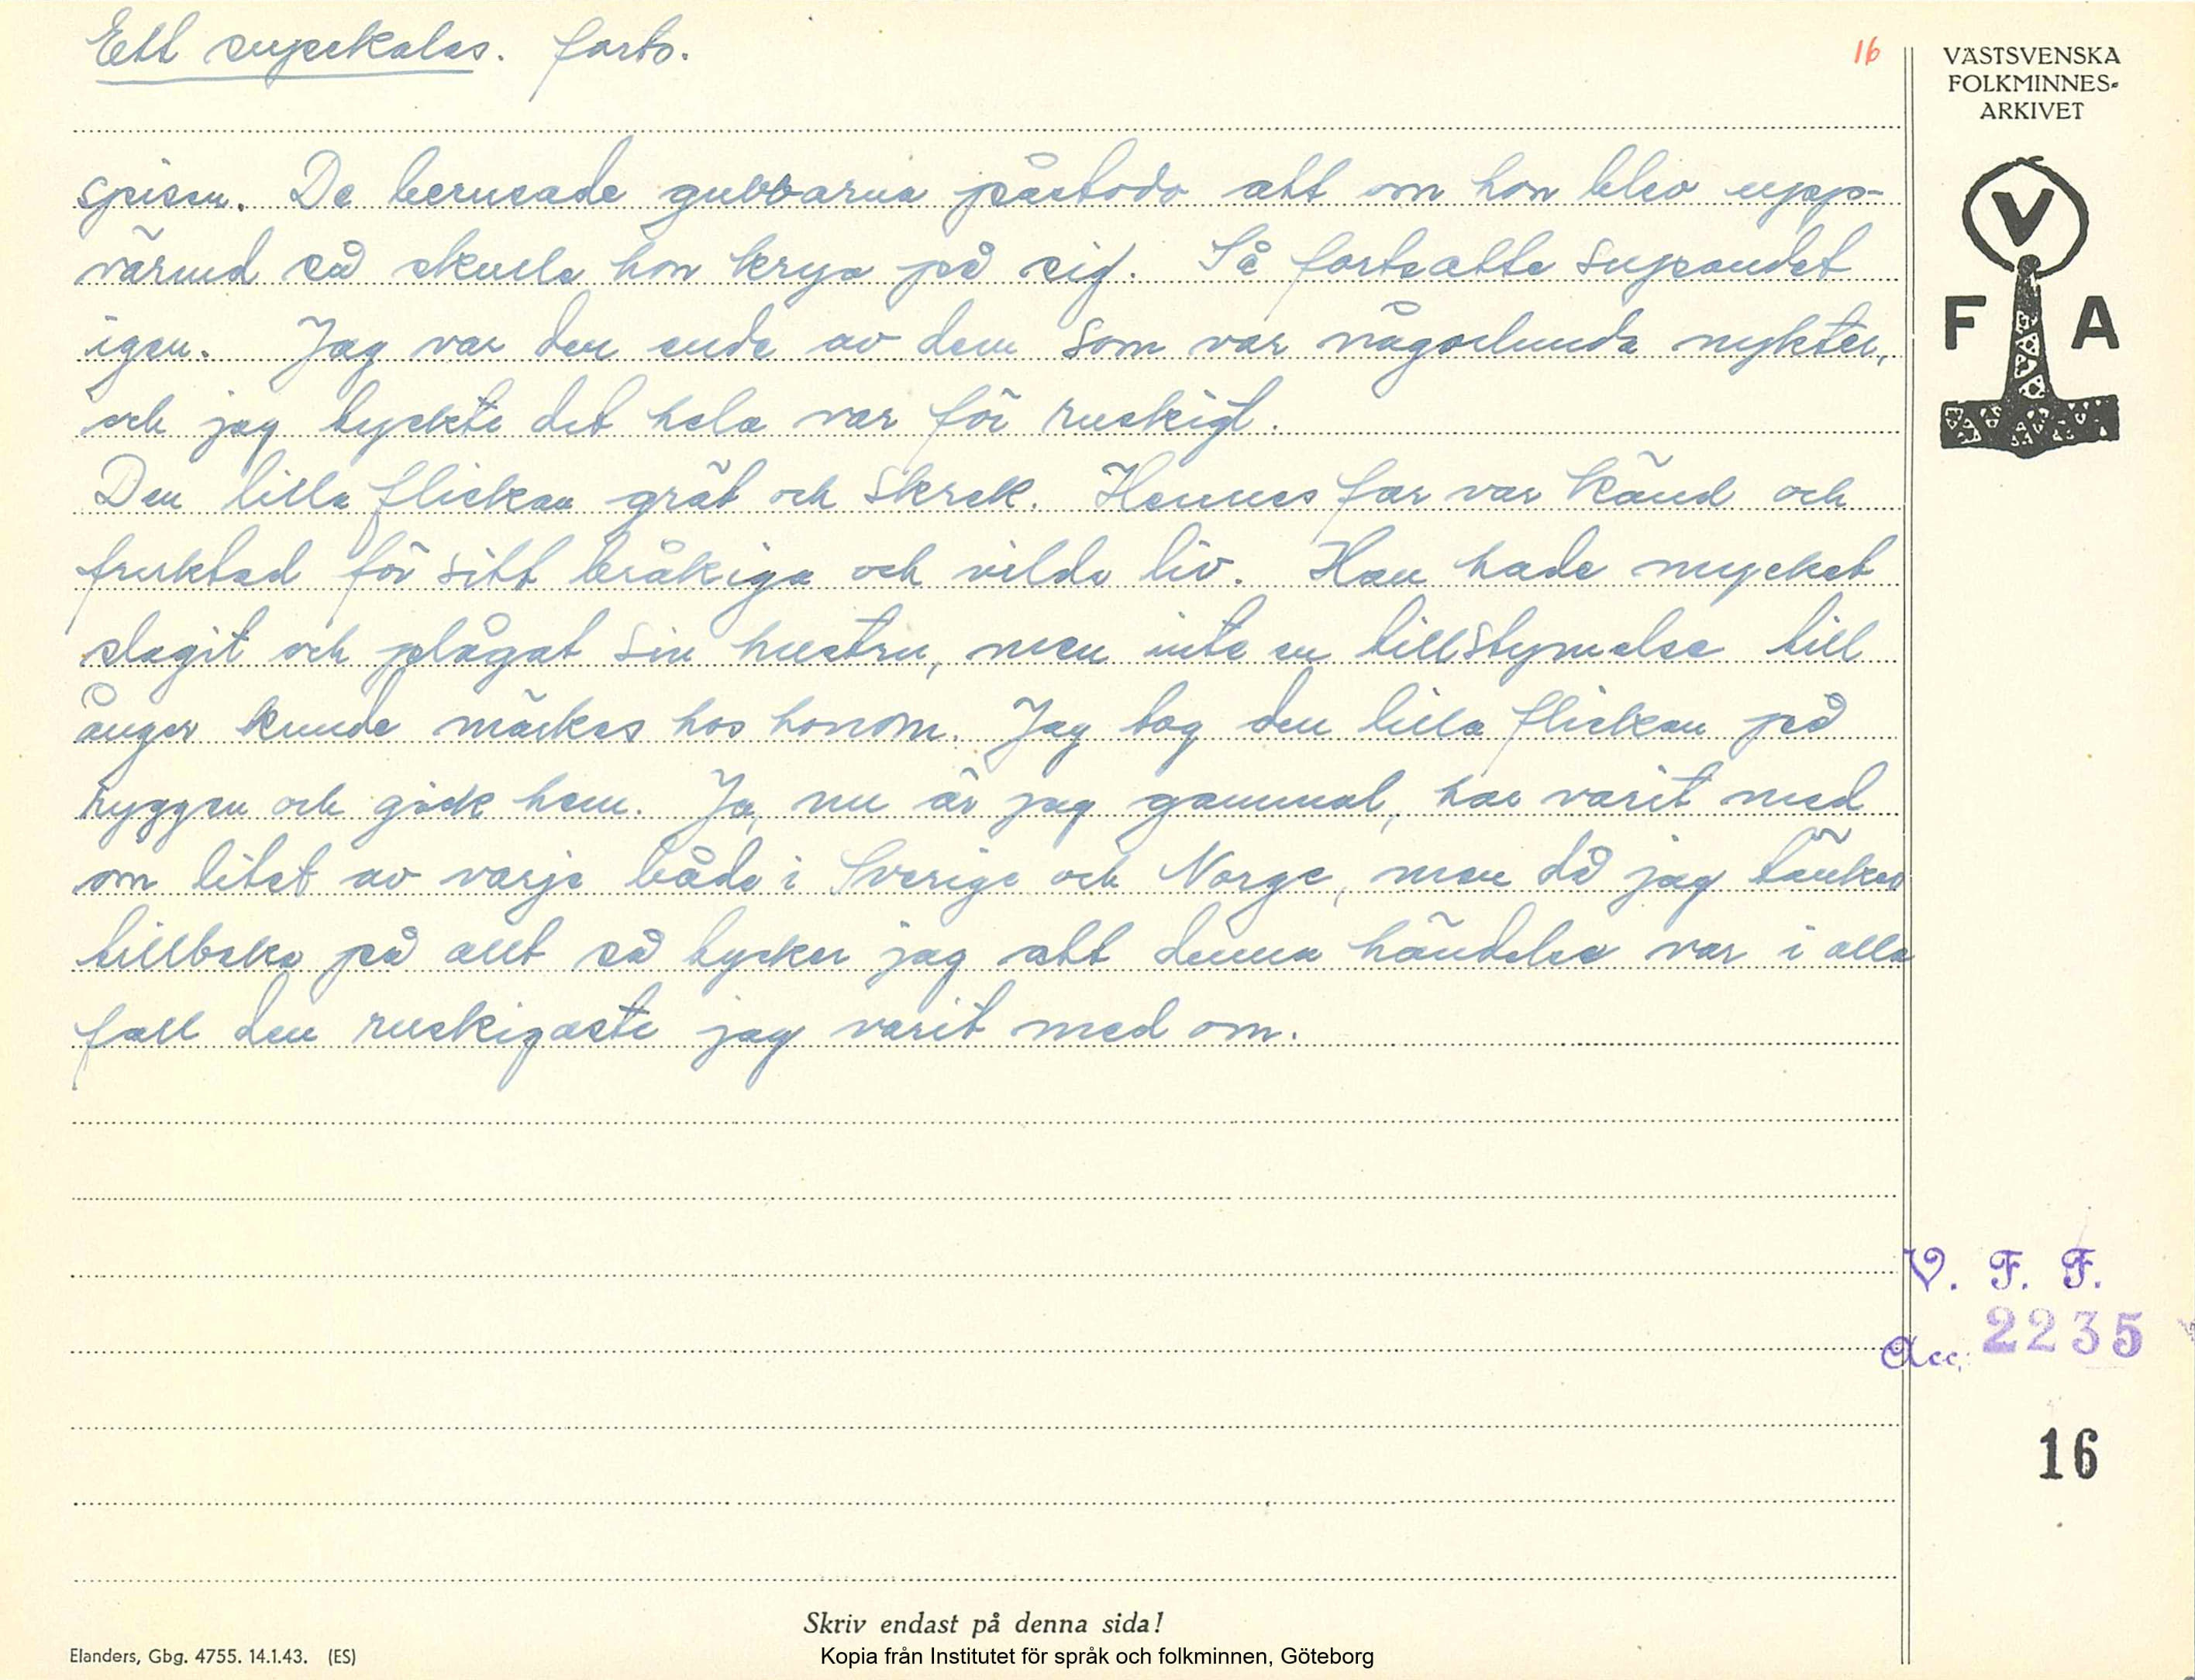 Ett supekalas. forts.
16
VÄSTSVENSKA
FOLKMINNES-
ARKIVET
V
F A
spisen. De berusade gubbarna påstodo att om hon blev upp-
värmd så skulle hon krya på sig. Så fortsatte supandet
igen. Jag var den ende av dem som var någorlunda nykter,
och jag tyckte det hela var för ruskigt.
Den lilla flickan grät och skrek. Hennes far var känd och
fruktad för sitt bråkiga och vilda liv. Han hade mycket
slagit och plågat sin hustru, men inte en tillstymelse till
ånger kunde märkas hos honom. Jag tog den lilla flickan på
ryggen och gick hem. Ja, nu är jag gammal, har varit med
om litet av varje både i Sverige och Norge, men då jag tänker
tillbaka på allt så tycker jag att denna händelse var i alla
fall den ruskigaste jag varit med om.
V. F. F.
Acc. 2235
16
Skriv endast på denna sida!
Elanders, Gbg. 4755. 14.1.43. (ES)
Kopia från Institutet för språk och folkminnen, Göteborg